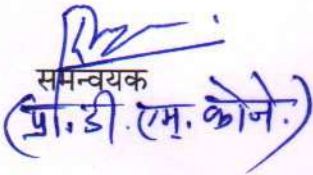 समन्वयक
(प्रो. डी. एम. कोजे.)